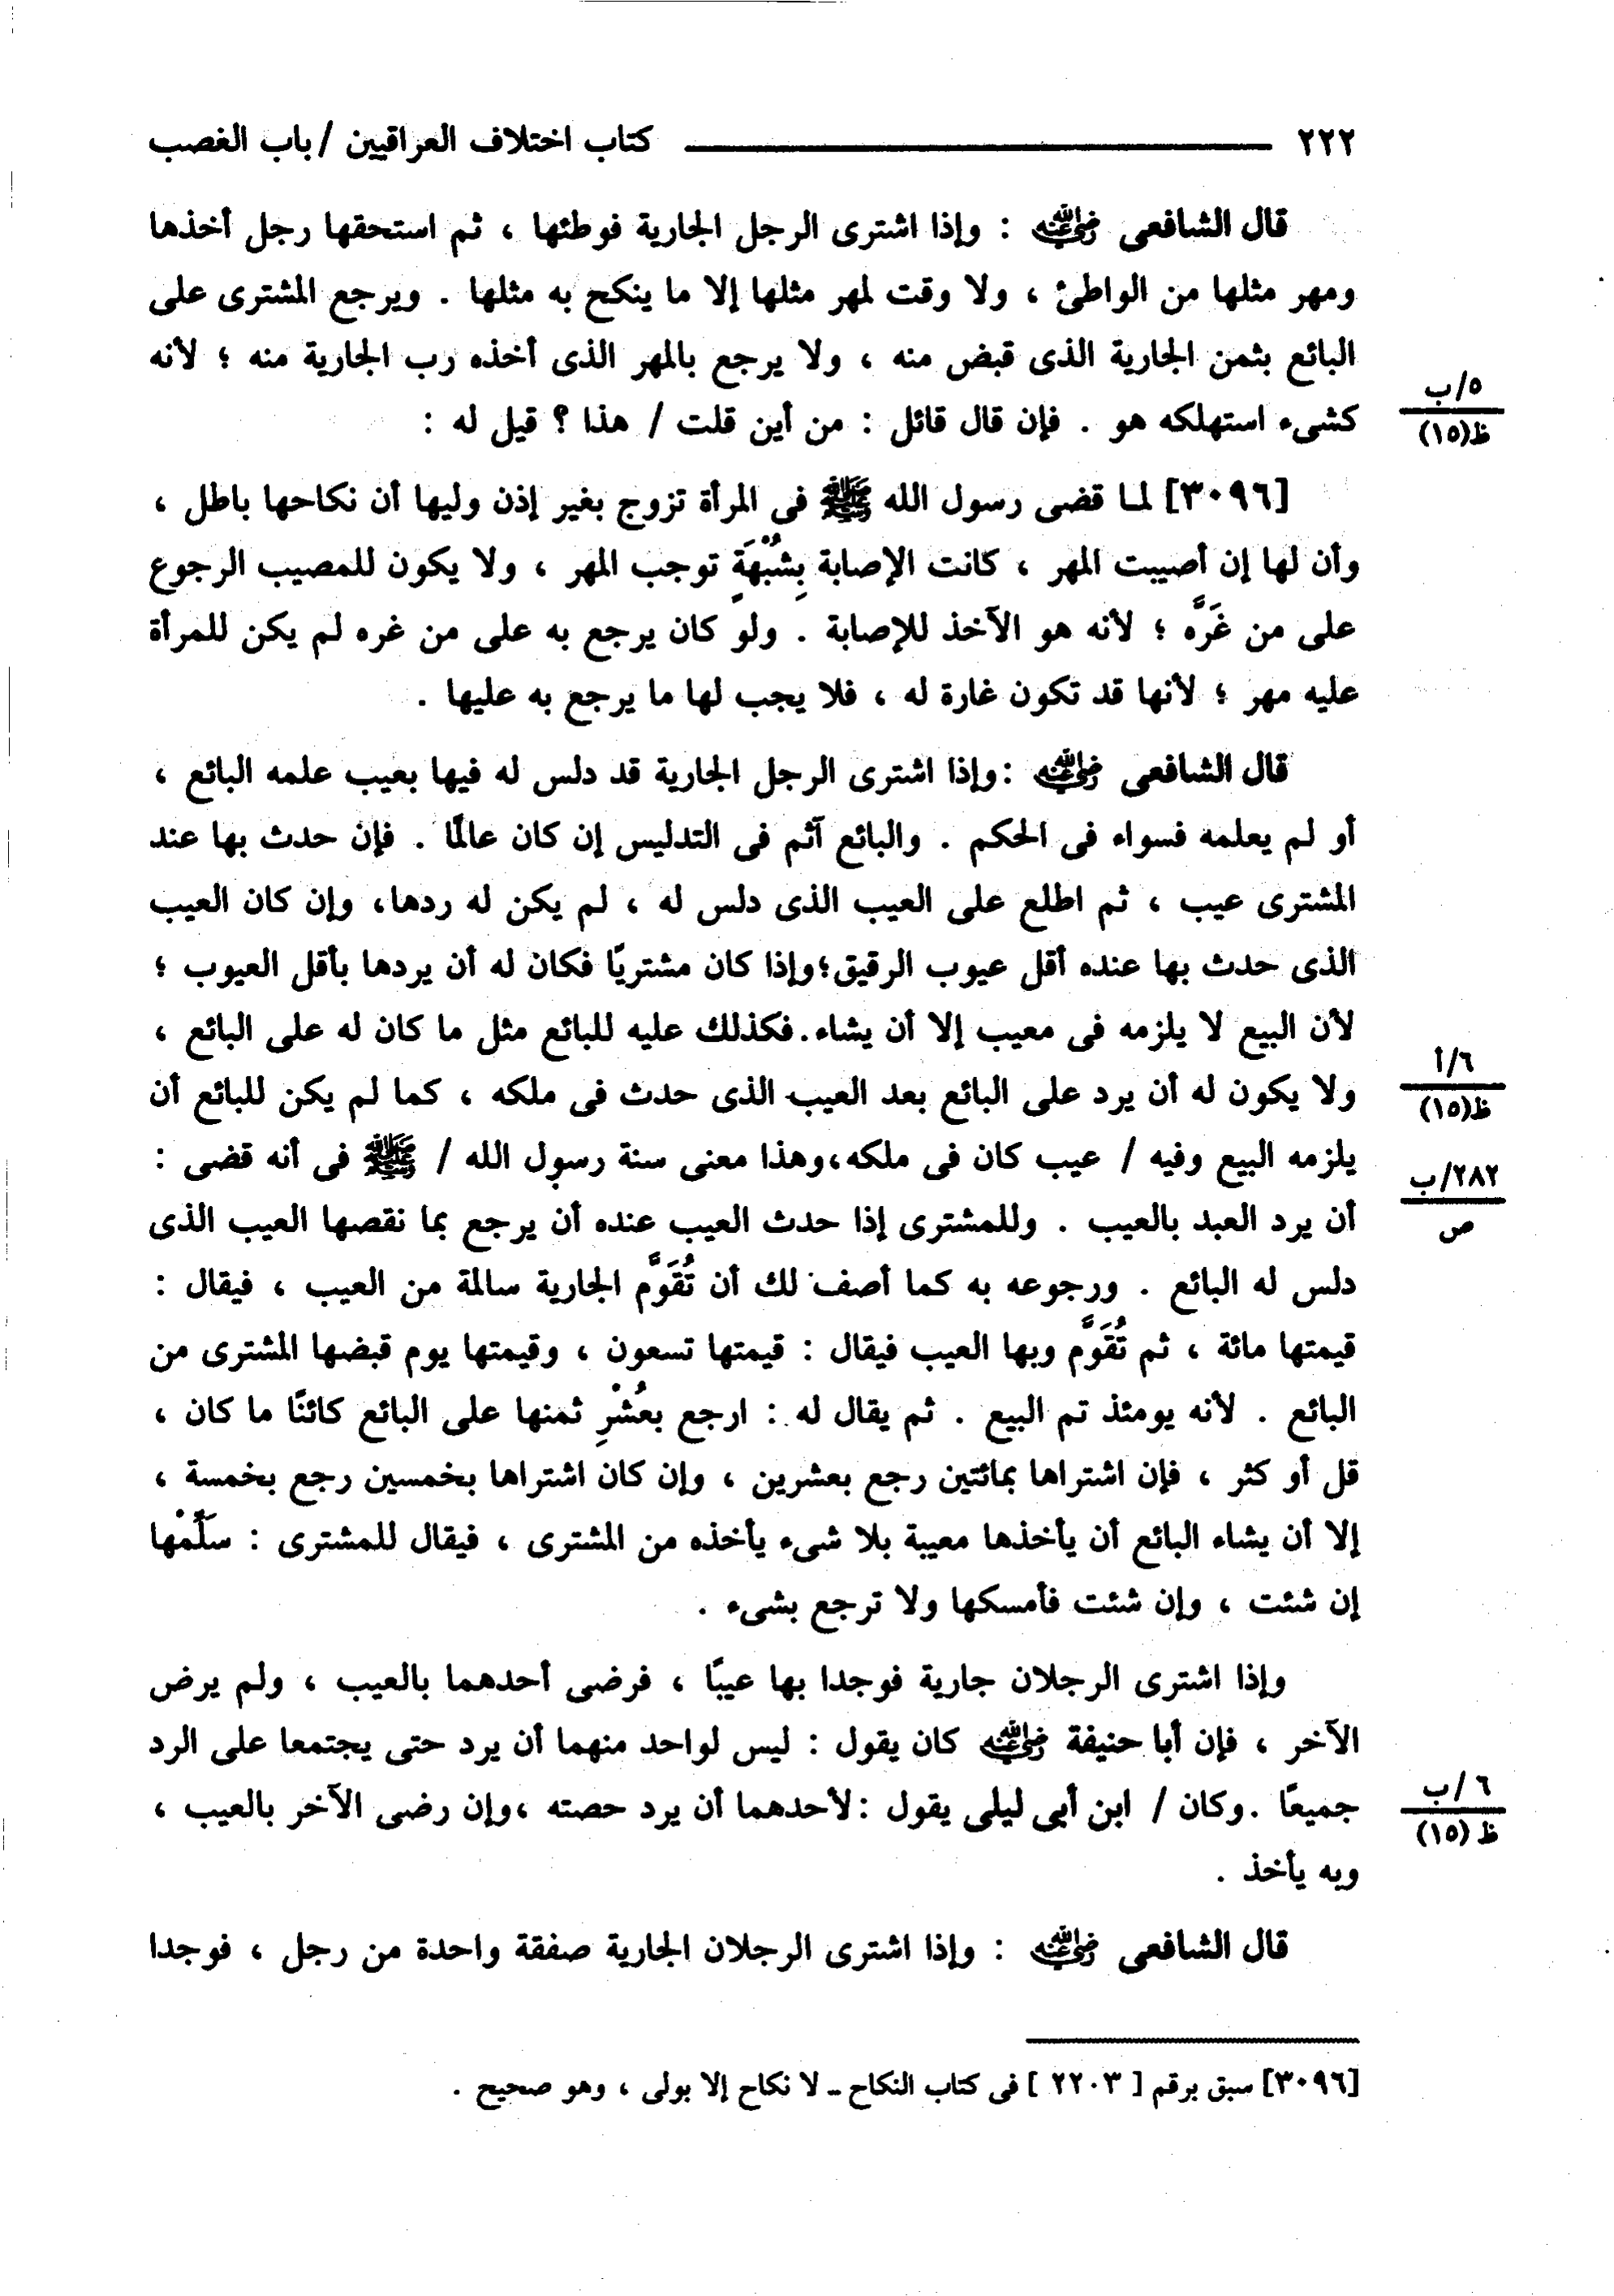 ٢٢٢ كتاب اختلاف العراقيين / باب الغصب
قال الشافعى رضي الله عنه : وإذا اشترى الرجل الجارية فوطئها ، ثم استحقها رجل أخذها
ومهر مثلها من الواطئ ، ولا وقت لمهر مثلها إلا ما ينكح به مثلها . ويرجع المشترى على
البائع بثمن الجارية الذى قبض منه ، ولا يرجع بالمهر الذى أخذه رب الجارية منه ؛ لأنه
٥/ب
كشىء استهلكه هو . فإن قال قائل : من أين قلت / هذا ؟ قيل له :
ظ(١٥)
[٣٠٩٦] لما قضى رسول الله ﷺ فى المرأة تزوج بغير إذن وليها أن نكاحها باطل ،
وأن لها إن أصيبت المهر ، كانت الإصابة بِشُبْهَةٍ توجب المهر ، ولا يكون للمصيب الرجوع
على من غَرَّه ؛ لأنه هو الآخذ للإصابة . ولو كان يرجع به على من غره لم يكن للمرأة
عليه مهر ؛ لأنها قد تكون غارة له ، فلا يجب لها ما يرجع به عليها .
قال الشافعى رضي الله عنه :وإذا اشترى الرجل الجارية قد دلس له فيها بعيب علمه البائع ،
أو لم يعلمه فسواء فى الحكم . والبائع آثم فى التدليس إن كان عالمًا . فإن حدث بها عند
المشترى عيب ، ثم اطلع على العيب الذى دلس له ، لم يكن له ردها، وإن كان العيب
الذى حدث بها عنده أقل عيوب الرقيق؛وإذا كان مشتريًا فكان له أن يردها بأقل العيوب ؛
لأن البيع لا يلزمه فى معيب إلا أن يشاء.فكذلك عليه للبائع مثل ما كان له على البائع ،
٦/أ
ولا يكون له أن يرد على البائع بعد العيب الذى حدث فى ملكه ، كما لم يكن للبائع أن
ظ(١٥)
يلزمه البيع وفيه / عيب كان فى ملكه،وهذا معنى سنة رسول الله / ﷺ فى أنه قضى :
٢٨٢/ب
أن يرد العبد بالعيب . وللمشترى إذا حدث العيب عنده أن يرجع بما نقصها العيب الذى
ص
دلس له البائع . ورجوعه به كما أصف لك أن تُقَوَّم الجارية سالمة من العيب ، فيقال :
قيمتها مائة ، ثم تُقَوَّم وبها العيب فيقال : قيمتها تسعون ، وقيمتها يوم قبضها المشترى من
البائع . لأنه يومئذ تم البيع . ثم يقال له : ارجع بعُشْرِ ثمنها على البائع كائنًا ما كان ،
قل أو كثر ، فإن اشتراها بمائتين رجع بعشرين ، وإن كان اشتراها بخمسين رجع بخمسة ،
إلا أن يشاء البائع أن يأخذها معيبة بلا شىء يأخذه من المشترى ، فيقال للمشترى : سَلِّمْها
إن شئت ، وإن شئت فأمسكها ولا ترجع بشىء .
وإذا اشترى الرجلان جارية فوجدا بها عيبًا ، فرضى أحدهما بالعيب ، ولم يرض
الآخر ، فإن أبا حنيفة رضي الله عنه كان يقول : ليس لواحد منهما أن يرد حتى يجتمعا على الرد
٦/ب
جميعًا .وكان / ابن أبى ليلى يقول :لأحدهما أن يرد حصته ،وإن رضى الآخر بالعيب ،
ظ (١٥)
وبه يأخذ .
قال الشافعى رضي الله عنه : وإذا اشترى الرجلان الجارية صفقة واحدة من رجل ، فوجدا
[٣٠٩٦] سبق برقم [ ٢٢٠٣ ] فى كتاب النكاح ـ لا نكاح إلا بولى ، وهو صحيح .